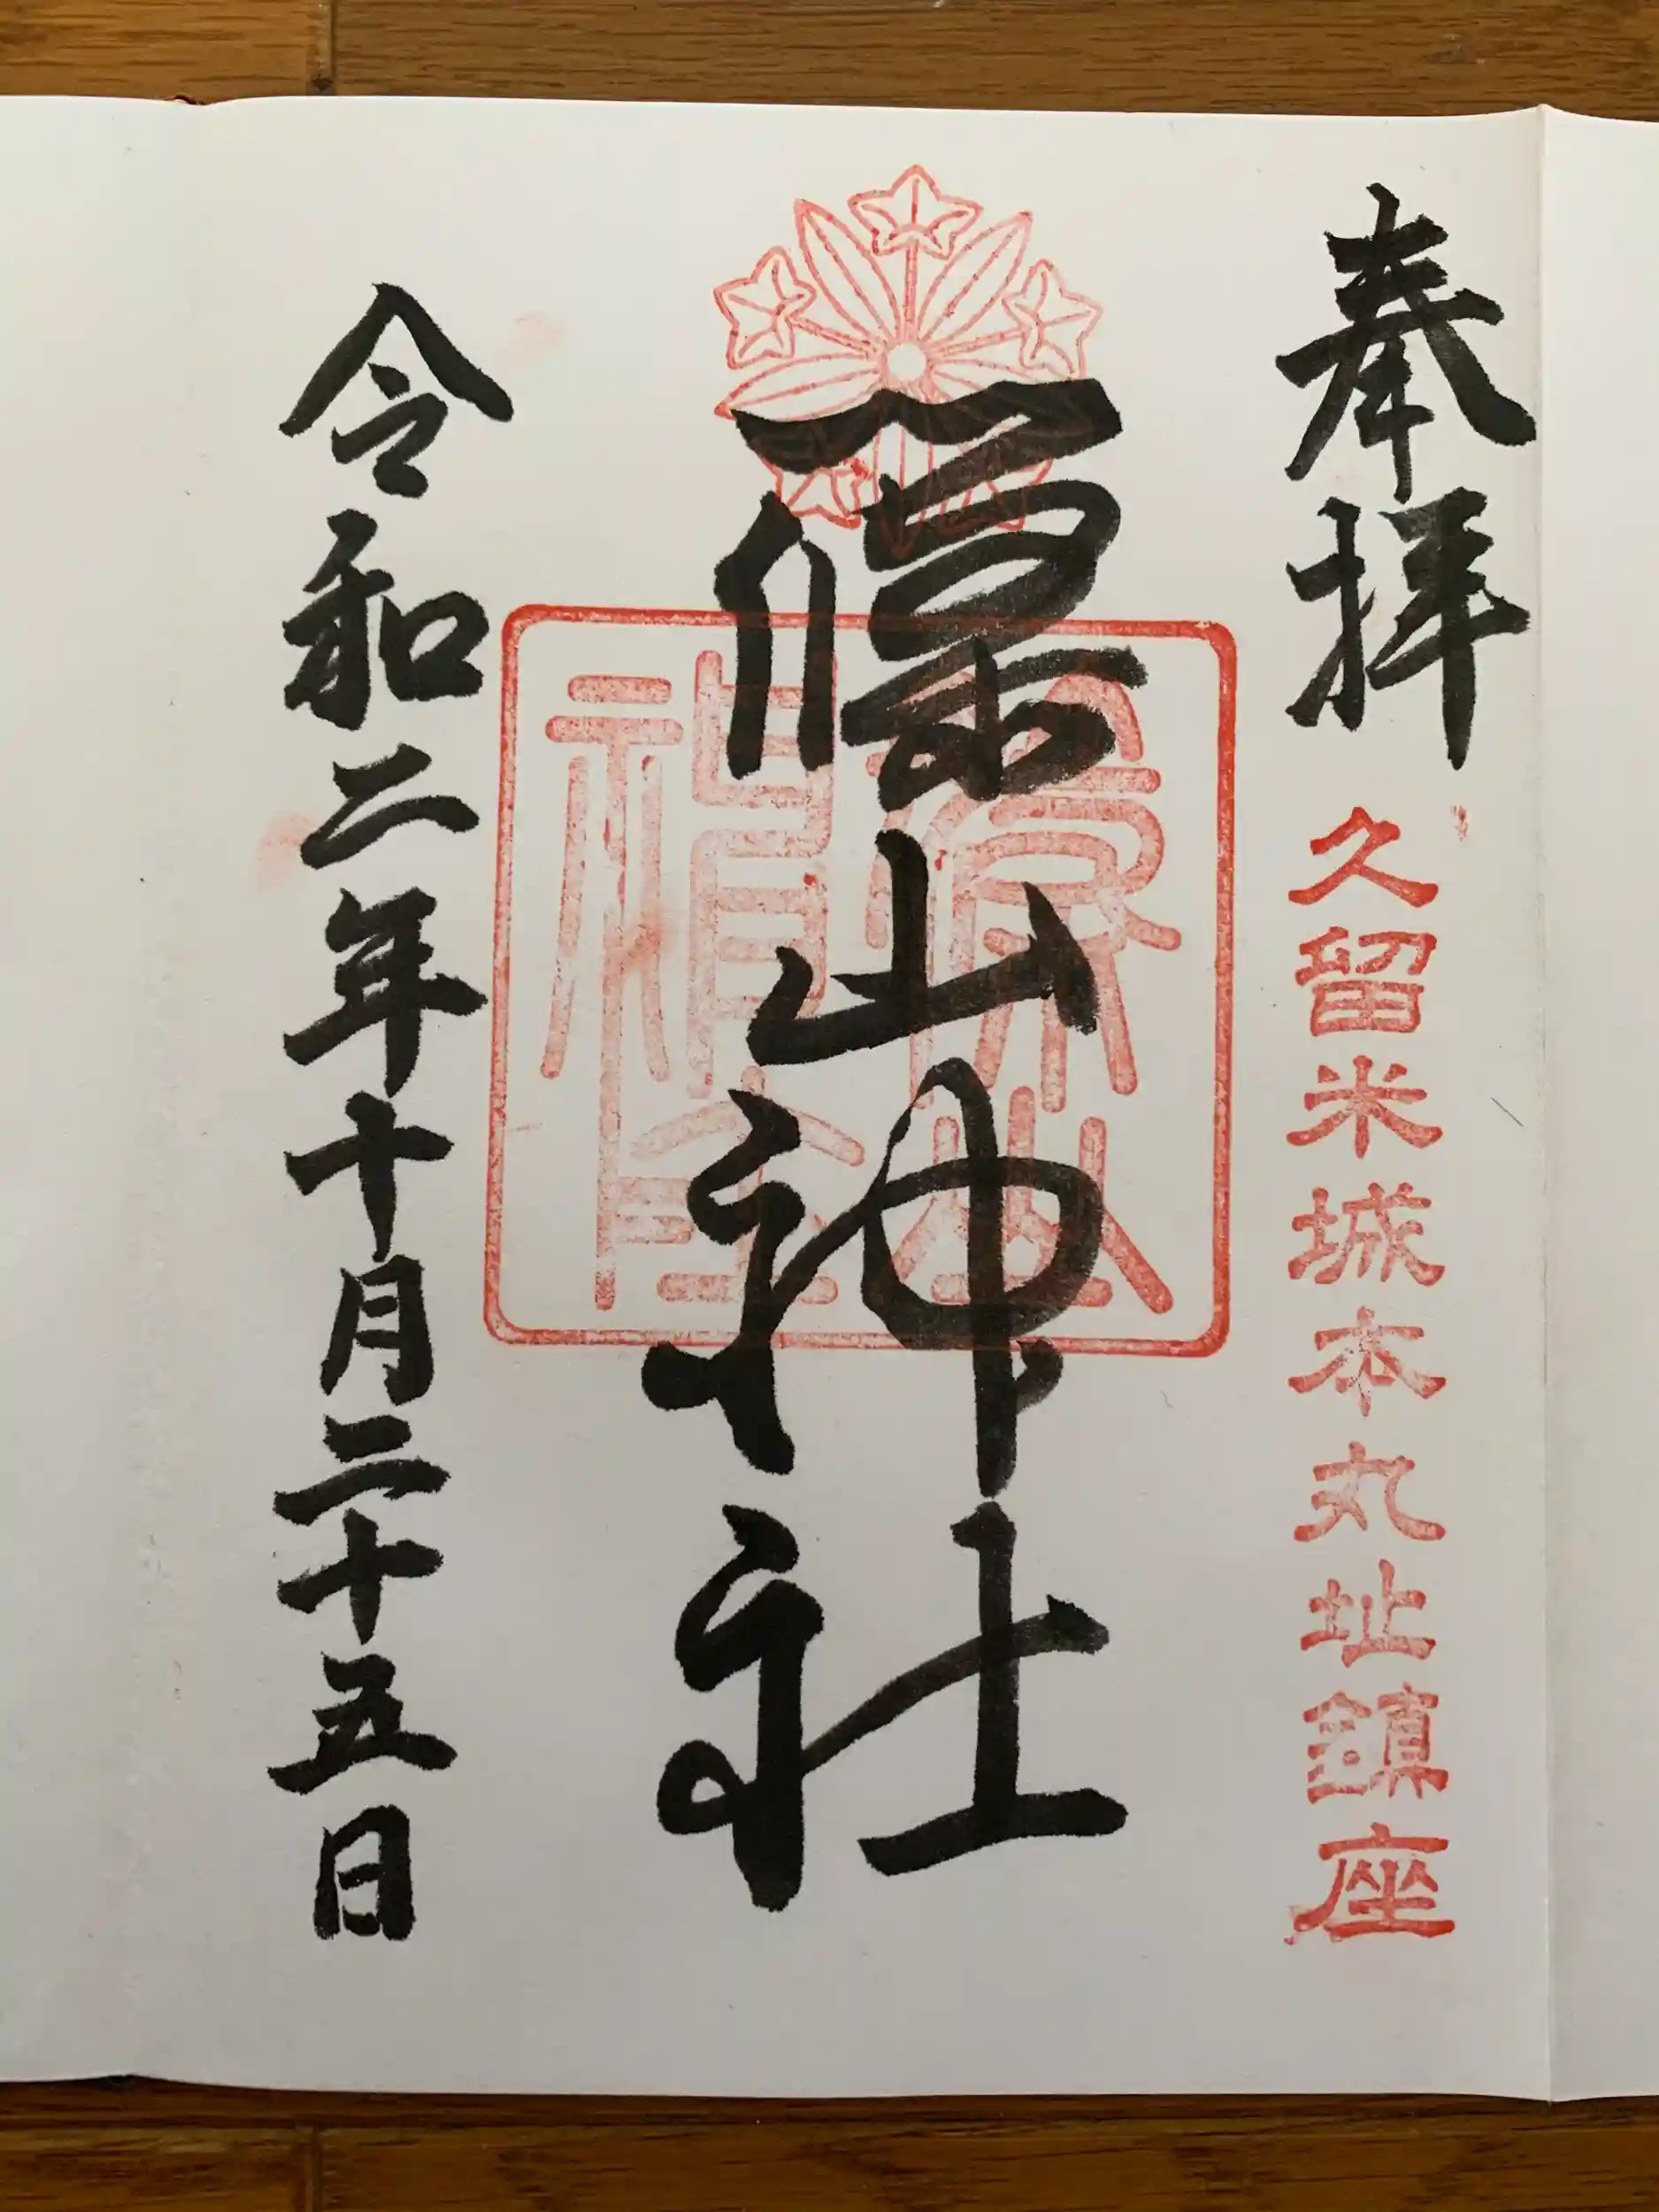 奉拝
久留米城本丸址鎮座
篠山神社
令和二年十月二十五日